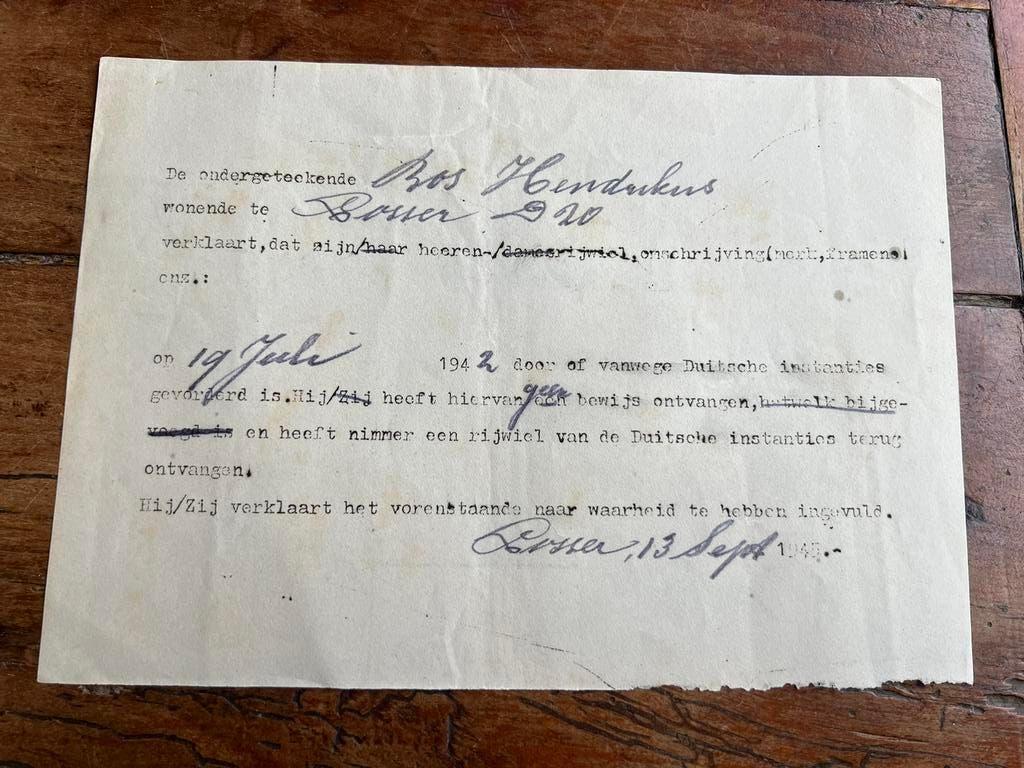 De ondergeteekende Bos Hendrikus
wonende te Losser D 20
verklaart,dat zijn/haar heeren-/damesrijwiel,omschrijving(merk,framenᵒ
enz.:
op 19 Juli 1942 door of vanwege Duitsche instanties
gevorderd is.Hij/Zij heeft hiervan geen bewijs ontvangen,hetwelk bijge-
voegd is en heeft nimmer een rijwiel van de Duitsche instanties terug
ontvangen.
Hij/Zij verklaart het vorenstaande naar waarheid te hebben ingevuld.
Losser, 13 Sept 1945.-